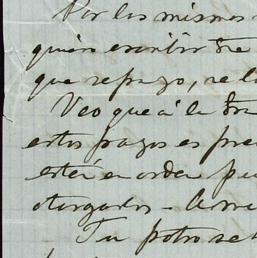 Por los mismos
quiero escribir
que repazo, se l
Veo que á la
estos pagos es pre
esté en orden pu
otorgados - 
Tu potro se